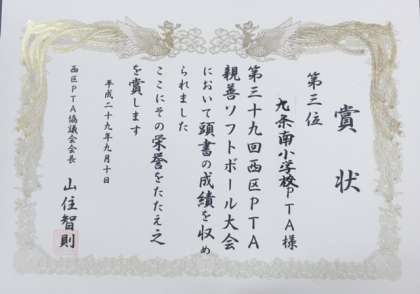 賞状
第三位
九条南小学校PTA様
第三十九回西区PTA
親善ソフトボール大会
において頭書の成績を収め
られました
ここにその栄誉をたたえ之
を賞します
平成二十九年九月十日
西区PTA協議会会長
山住智則